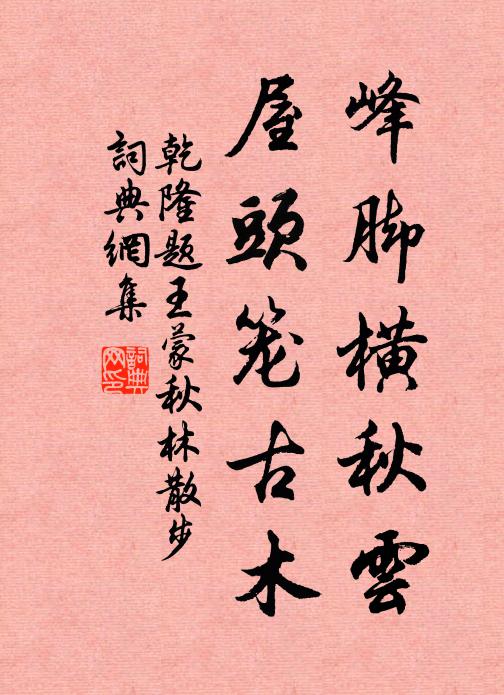 峰脚橫秋雲
屋頭笼古木
乾隆题王蒙秋林散步
詞典網集
詞典网印